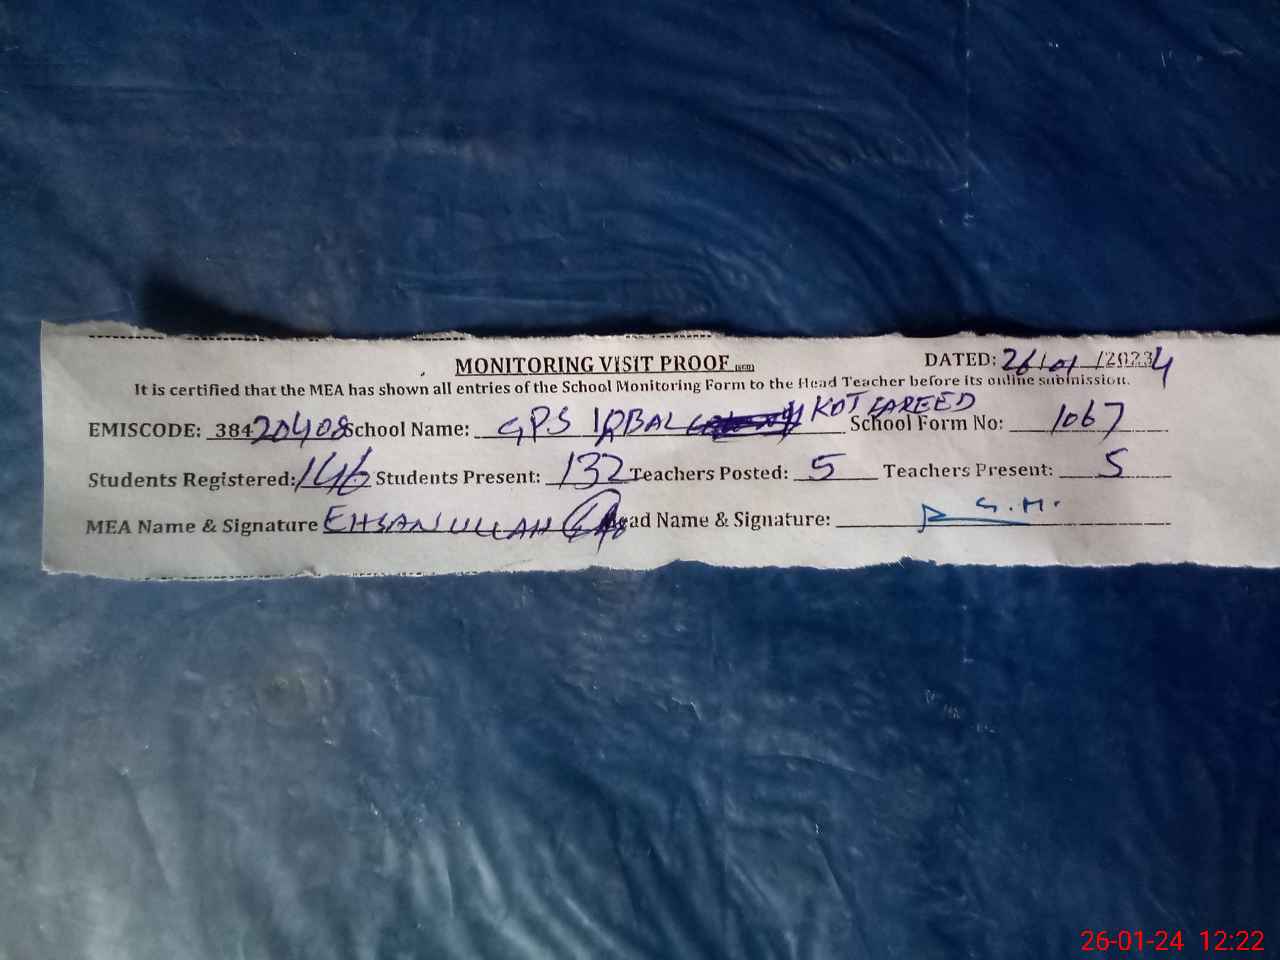 MONITORING VISIT PROOF
DATED: 26/01/2024
It is certified that the MEA has shown all entries of the School Monitoring Form to the Head Teacher before its online submission.
EMISCODE: 38420408 School Name: GPS IQBAL KOT FAREED School Form No: 1067
Students Registered: 146 Students Present: 132 Teachers Posted: 5 Teachers Present: 5
MEA Name & Signature EHSAN ULLAH Head Name & Signature: S.M.
26-01-24 12:22